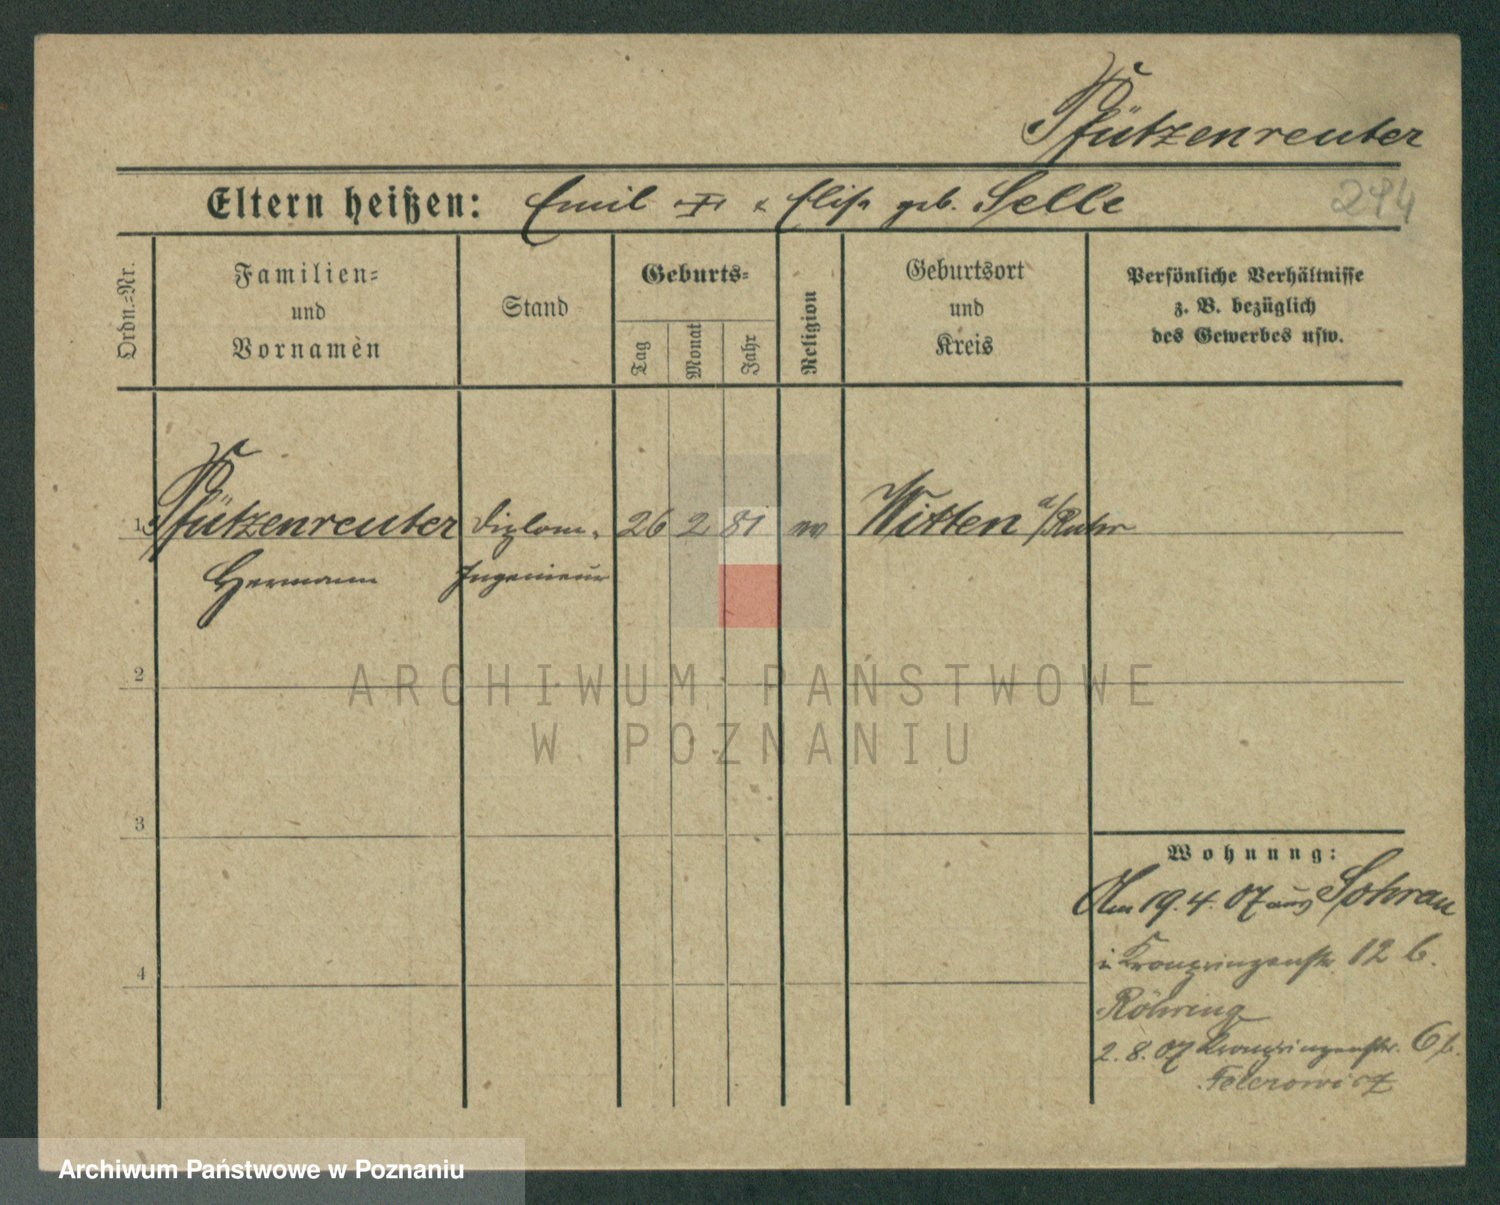 Pfützenreuter
Eltern heißen: Emil u. Elise geb. Selle
294
Ordn.-Nr.
Familien- und Vornamen
Stand
Geburts-
Tag
Monat
Jahr
Religion
Geburtsort und Kreis
Persönliche Verhältnisse
z. B. bezüglich
des Gewerbes usw.
1 Pfützenreuter Diplom. 26 2 81 ev Witten a/Ruhr
Hermann Ingenieur
2
ARCHIWUM PAŃSTWOWE
W POZNANIU
3
Wohnung:
Am 19.4.07 aus Sohrau
in Kronprinzenstr. 12 b.
4
Röhring
2.8.07 Kronprinzenstr. 6 b.
Archiwum Państwowe w Poznaniu